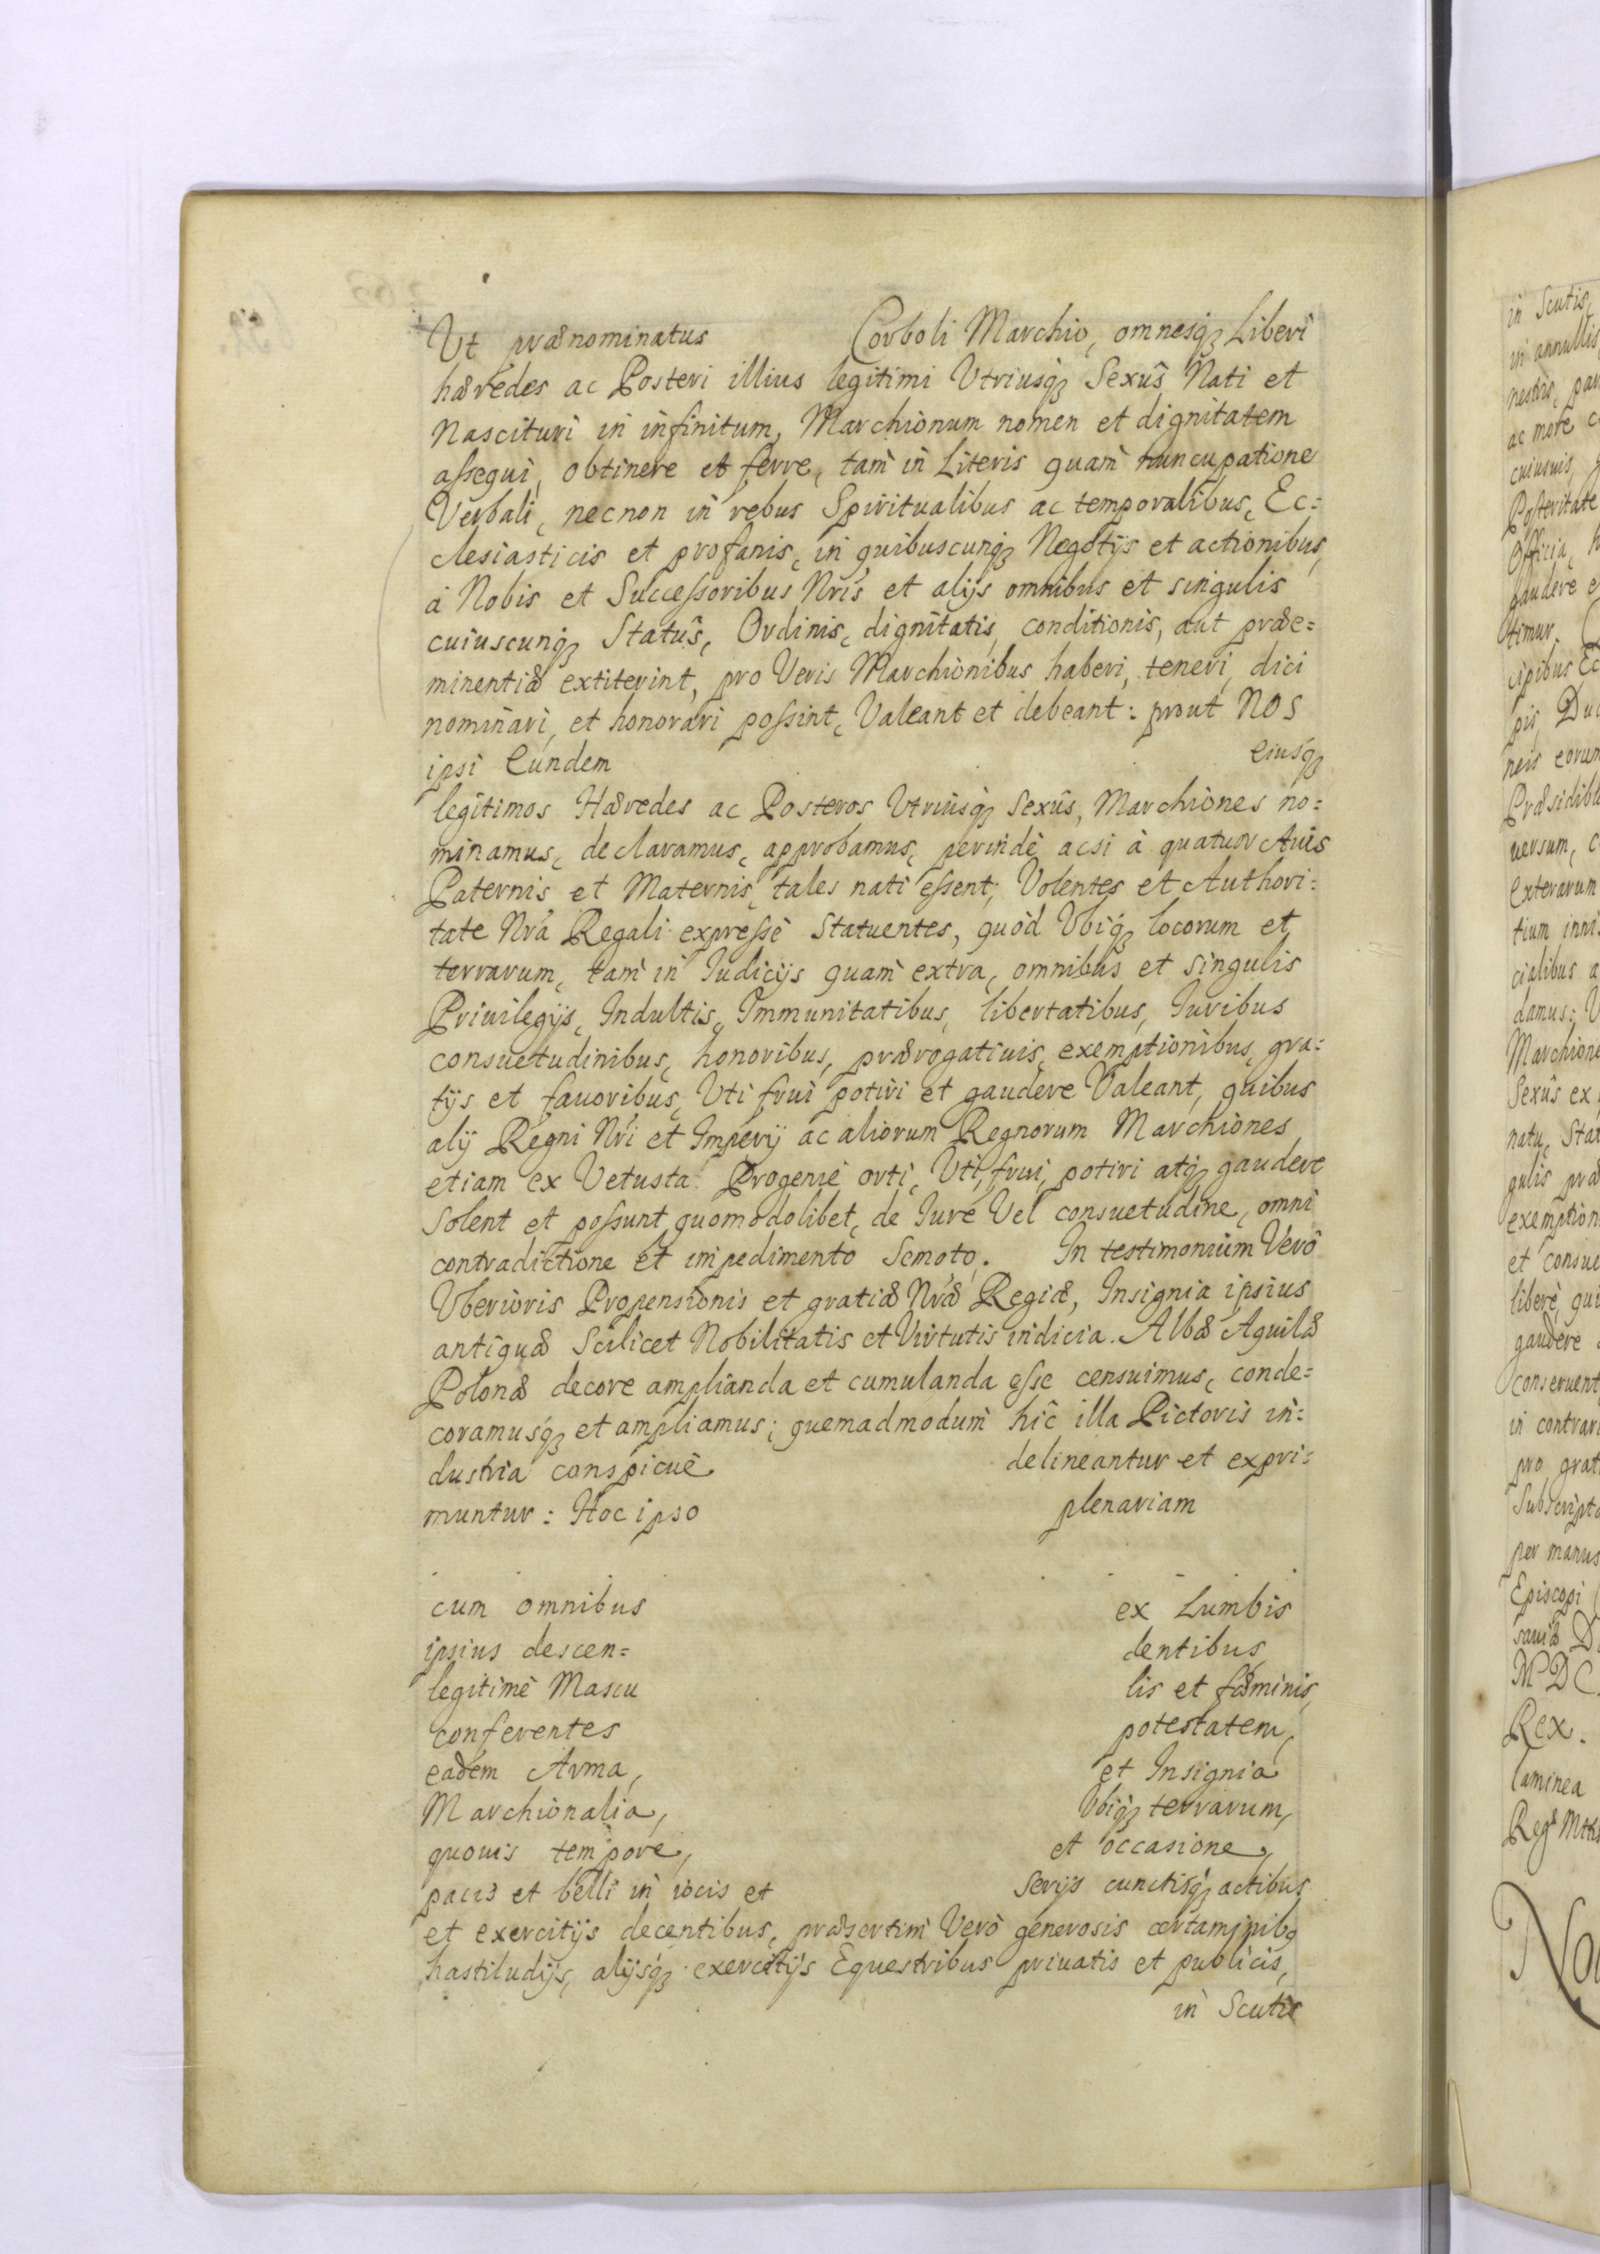 Ut prænominatus Corboli Marchio, omnesq3 Liberi
hæredes ac Posteri illius legitimi Utriusq3 Sexûs Nati et
Nascituri in infinitum, Marchionum nomen et dignitatem
assequi, obtinere et ferre, tam in Literis quam nuncupatione
Verbali, necnon in rebus Spiritualibus ac temporalibus, Ec=
clesiasticis et profanis, in quibuscunq3 Negotijs et actionibus,
à Nobis et Successoribus Nris et alijs omnibus et singulis
cuiuscunq3 Statûs, Ordinis, dignitatis, conditionis, aut præe=
minentiæ extiterint, pro Veris Marchionibus haberi, teneri, dici
nominari, et honorari possint, Valeant et debeant: prout NOS
ipsi Eundem eiusq3
legitimos Hæredes ac Posteros Utriusq3 Sexûs, Marchiones no=
minamus, declaramus, approbamus, perindè acsi à quatuor Auis
Paternis et Maternis, tales nati essent; Volentes et Authori=
tate Nrâ Regali expressè Statuentes, quòd Ubiq3 locorum et
terrarum, tam in Iudicijs quam extra, omnibus et singulis
Priuilegijs, Indultis, Immunitatibus, libertatibus, Iuribus
consuetudinibus, honoribus, prærogatiuis, exemptionibus, gra=
tijs et fauoribus, Uti frui potiri et gaudere Valeant, quibus
alij Regni Nri et Imperij ac aliorum Regnorum Marchiones,
etiam ex Vetusta Progenie orti, Uti, frui, potiri atq3 gaudere
Solent et possunt quomodolibet, de Iure Vel consuetudine, omni
contradictione et impedimento Semoto. In testimonium Verò
Uberioris Propensionis et gratiæ Nræ Regiæ, Insignia ipsius
antiquæ Scilicet Nobilitatis et Virtutis indicia. Albæ Aquilæ
Polonæ decore amplianda et cumulanda esse censuimus, conde=
coramusq3 et ampliamus; quemadmodum hîc illa Pictoris in=
dustria conspicuè delineantur et expri=
muntur: Hoc ipso plenariam
cum omnibus ex Lumbis
ipsius descen= dentibus,
legitimè Mascu lis et fœminis,
conferentes potestatem,
eadem Arma, et Insignia
Marchionalia, Ubiq3 terrarum,
quouis tempore, et occasione,
pacis et belli in iocis et Serijs cunctisq3 actibus
et exercitijs decentibus, præsertim Verò generosis certaminib9
hastiludijs, alijsq3 exercitijs Equestribus priuatis et publicis,
in Scutis
in Scutis,
in annullis,
ac more
cuiusuis,
Posteritate
Officia,
gaudere e
timur.
cipibus Ec
pis, Du
neis eorum
Præsidib
uersum, c
Exterarum
tium
cialibus a
damus: U
Marchione
Sexûs ex
natu, Sta
gulis præ
exemption
et consue
liberè, qui
gaudere
conseruent
in contrari
pro grat
Subscripto
per manus
Episcopi
sauiæ D
MDC
Rex.
laminea